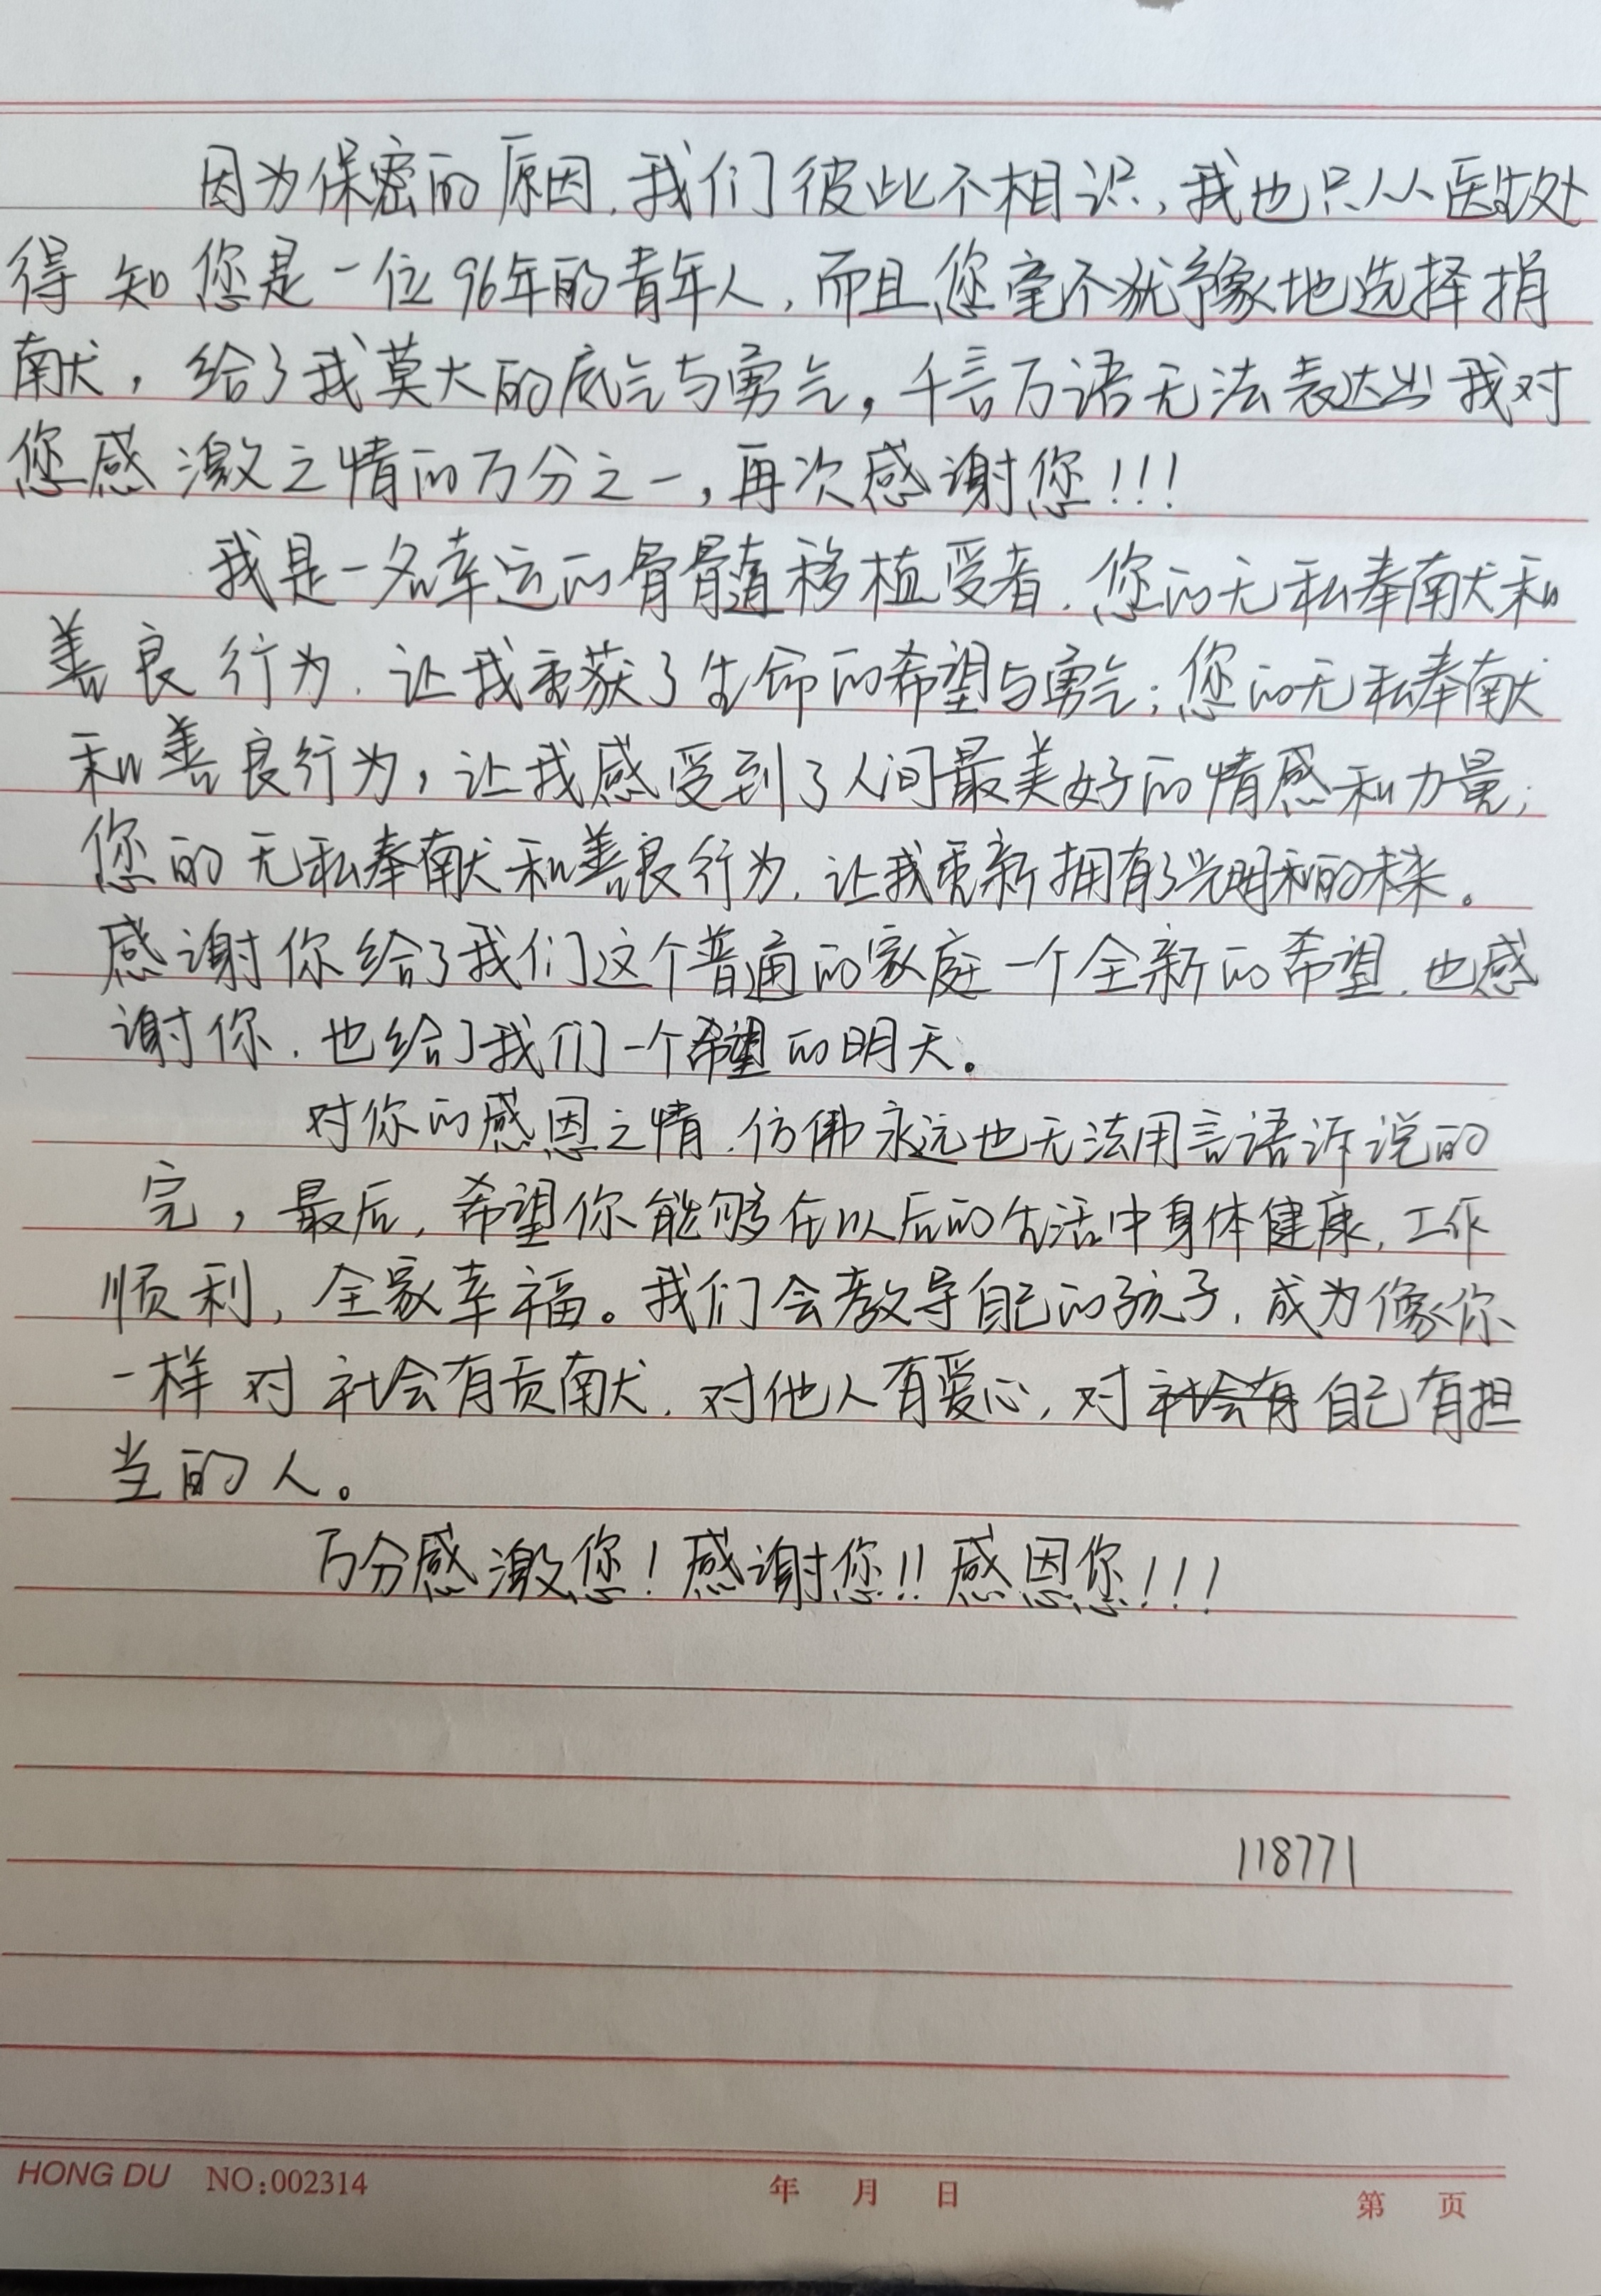 因为保密的原因,我们彼此不相识,我也只从医生处
得知您是一位96年的青年人,而且您毫不犹豫地选择捐
献,给了我莫大的底气与勇气,千言万语无法表达出我对
您感激之情的万分之一,再次感谢您!!!
我是一名幸运的骨髓移植受者,您的无私奉献和
善良行为,让我重获了生命的希望与勇气;您的无私奉献
和善良行为,让我感受到了人间最美好的情感和力量;
您的无私奉献和善良行为,让我重新拥有了光明和的未来。
感谢你给了我们这个普通的家庭一个全新的希望,也感
谢你,也给了我们一个希望的明天。
对你的感恩之情,仿佛永远也无法用言语诉说的
完,最后,希望你能够在以后的生活中身体健康,工作
顺利,全家幸福。我们会教导自己的孩子,成为像你
一样对社会有贡献,对他人有爱心,对社会有自己有担
当的人。
万分感激您!感谢您!!感恩您!!!
118771
HONG DU NO:002314 年 月 日 第 页